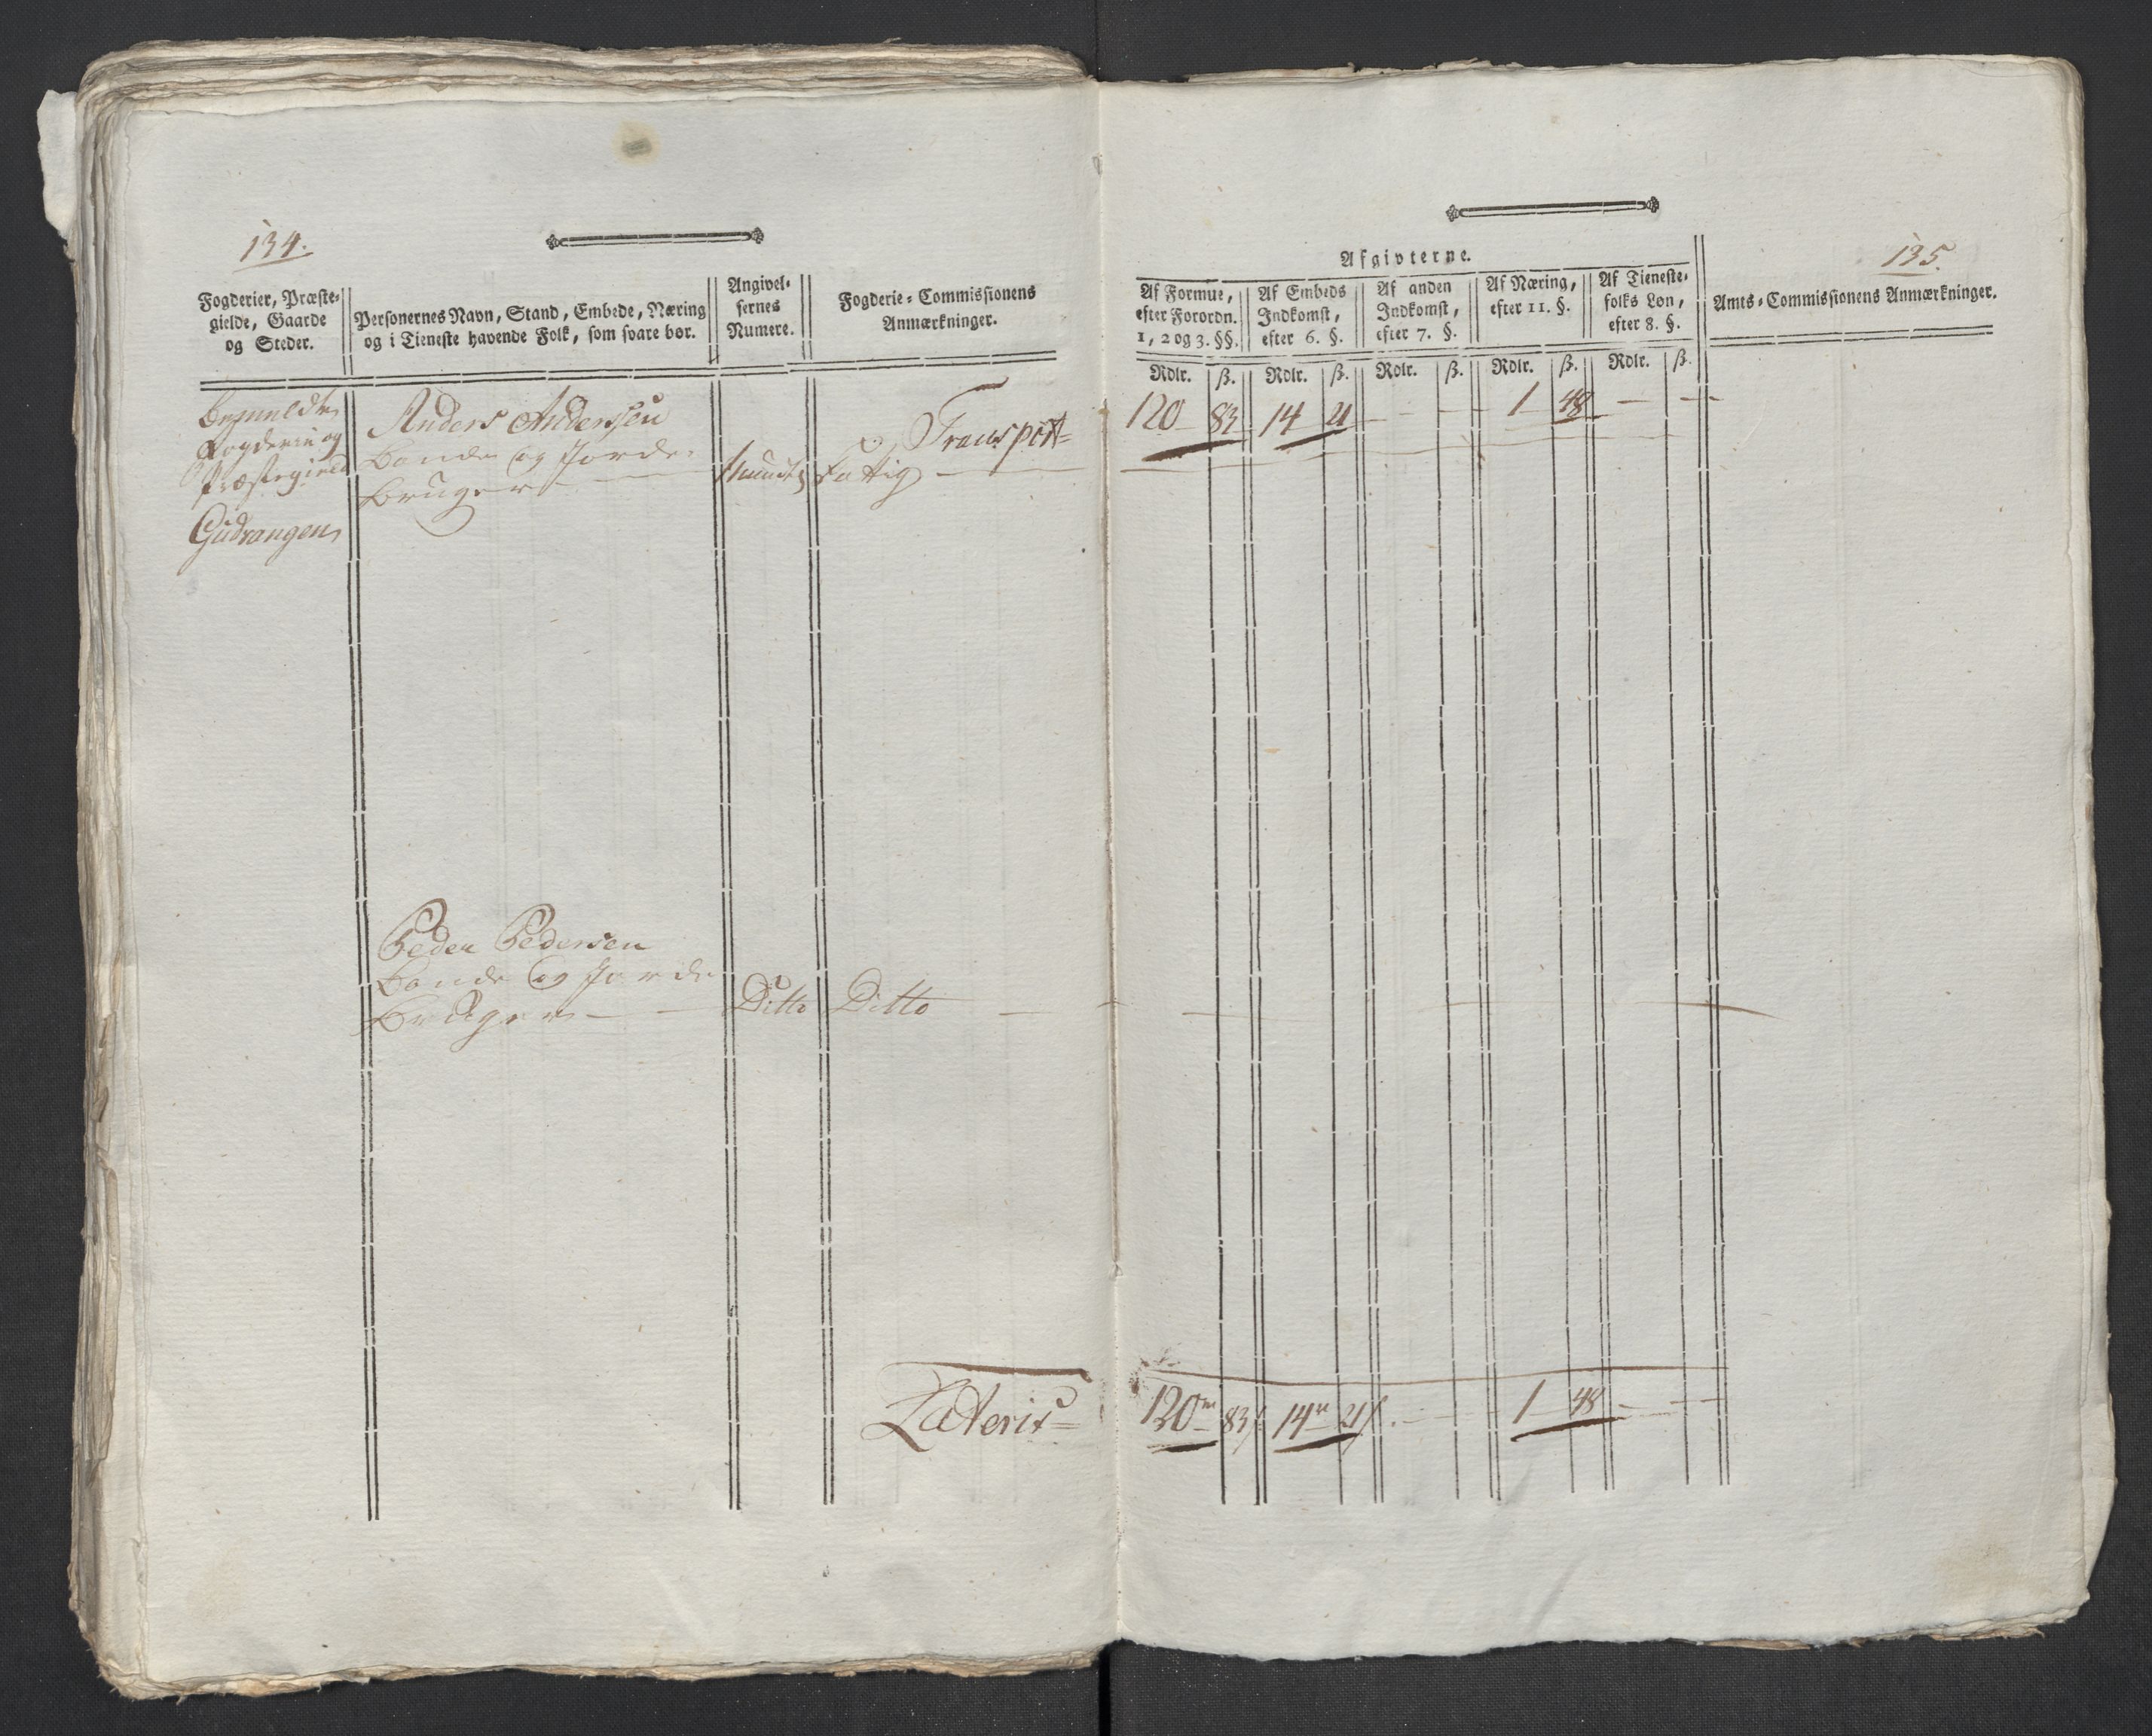 134.
Fogderier, Præste-
gielde, Gaarde
og Steder.
Personernes Navn, Stand, Embede, Næring
og i Tieneste havende Folk, som svare bør.
Angivel-
sernes
Numere.
Fogderie-Commissionens
Anmærkninger.
Bemeldte
Fogderie og
Præstegield
Gudvangen
Anders Anderssen
Bonde og Jorde-
bruger
fattig
Transport
Peder Pedersen
Bonde og Jorde
bruger
Ditto
Ditto
Lateris
135.
Afgivterne.
Af Formue,
efter Forordn.
1, 2 og 3. §§.
Af Embeds
Indkomst,
efter 6. §.
Af anden
Indkomst,
efter 7. §.
Af Næring,
efter 11. §.
Af Tieneste-
folks Løn,
efter 8. §.
Amts-Commissionens Anmærkninger.
Rdlr. ß. Rdlr. ß. Rdlr. ß. Rdlr. ß. Rdlr. ß.
120 83 14 21 — — 1 48 — —
120 83 14 21 — — 1 48 — —